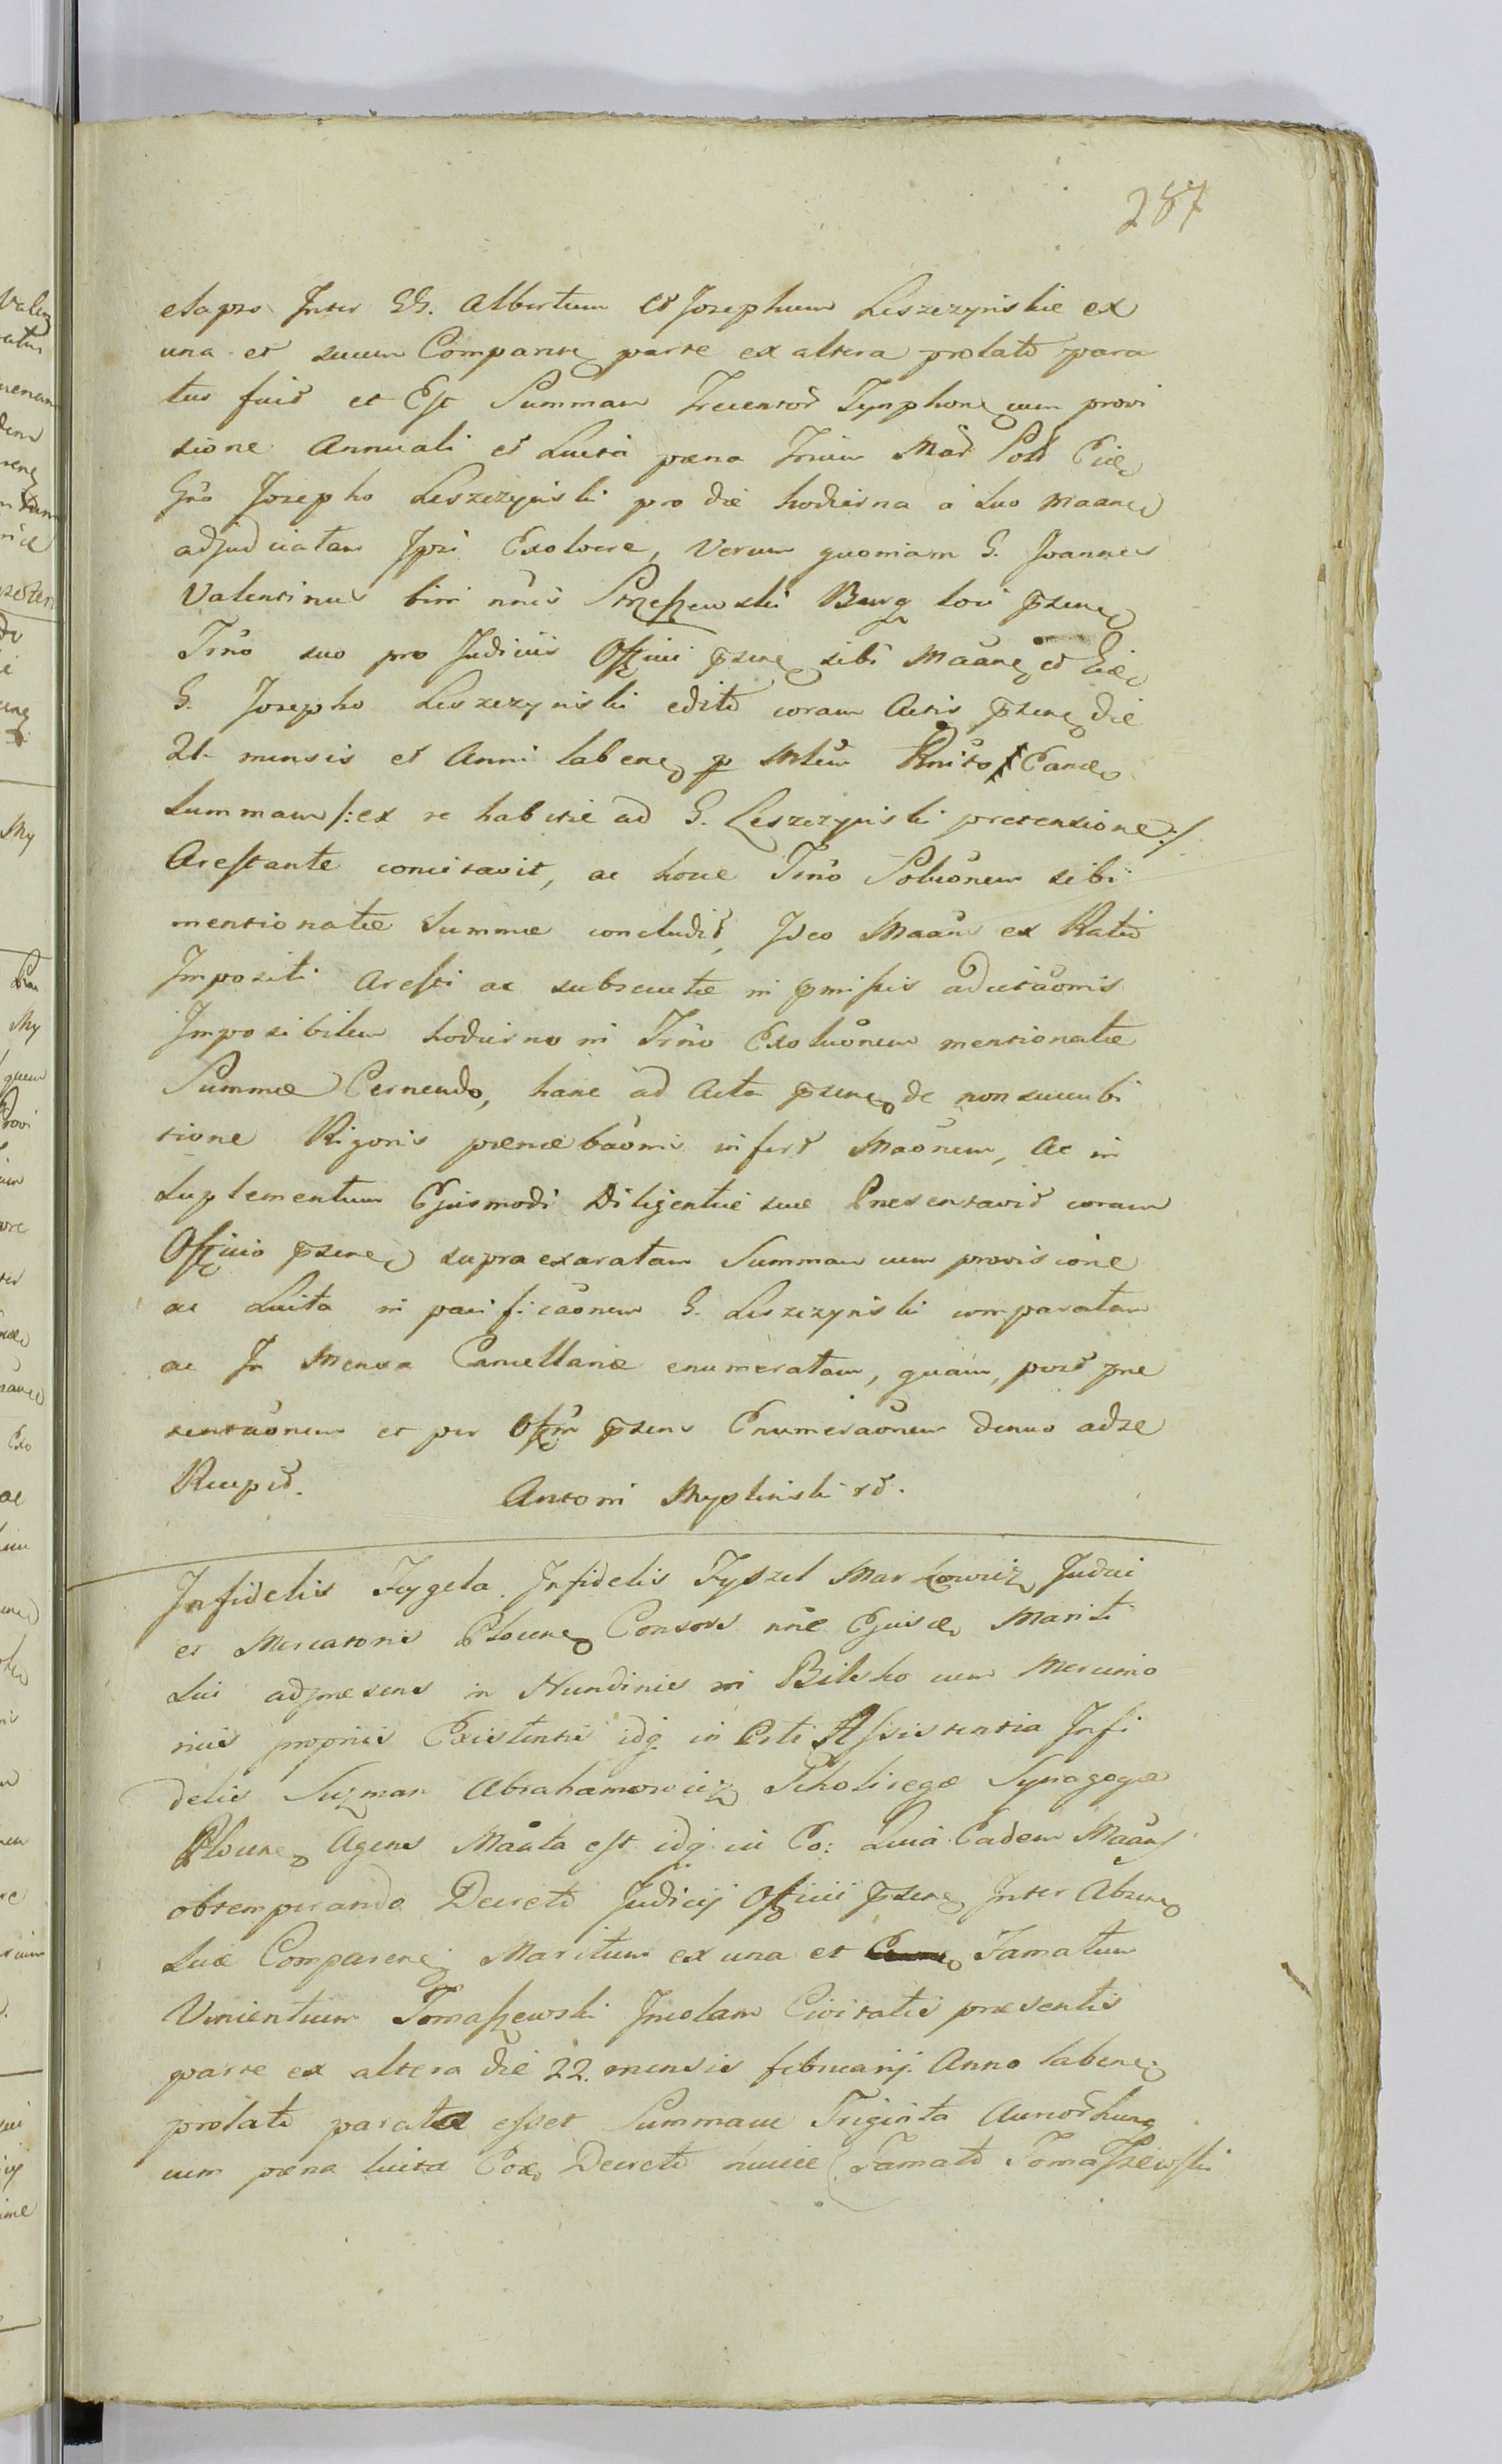 287
elapso Inter GG. Albertum et Josephum Leszczynskie ex
una et suum Comparen parte ex altera prolato para
tus fuit et Est Summam Trecentor Tynphon cum provi
sione Annuali et Luita pæna Trium Mar Pol Eid
Gno Josepho Leszczynski pro die hodierna a suo Maan
adjudicatam Ipsi Exolvere, Verum quoniam G. Joannes
Valentinus bini nnis Strzeszewski Burg loci psen
Trno suo pro Judiciis Officii psen sibi Maan et Eid
G. Josepho Leszczynski edito coram Actis psen die
21 mensis et Anni laben p Mlem Pnito Eand
Summam /:ex re habitæ ad G. Leszczynski pretensione:/
Arestante concitavit, ac hocce Trno Soluonem sibi
mentionatæ Summæ concludit, Ideo Maans ex Ratio
Impositi Aresti ac subsecutæ in pmissis adcitaonis
Imposibilem hodierno in Trno Exoluonem mentionatæ
Summæ Cernendo, hanc ad Acta psen de non succubi
tione Rigoris pænæ baomi infert Maonem, Ac in
Suplementum Ejusmodi Diligentiæ suæ Presentavit coram
Officio psen supra exaratam Summam cum provisione
ac Luita in pacificaonem G. Leszczynski comparatam
ac In Mensa Cancellariæ enumeratam, quam, post præ
sentaonem et per Offm psens Enumeraonem denuo ad se
Recepit. Antoni Myslinski
Infidelis Faygela Infidelis Fyszel Markowicz Judæi
et Mercatoris Plocen Consors nne Ejusd Mariti
sui adpræsens in Nundinis in Bilsko cum Mercimo
niis propriis Existentis idq in Assistentia Infi
delis Suzman Abrahamowicz Scholiregæ Synagogæ
Plocen Agens Maata est idq in Eo: Quia Eadem Maans
obtemperando Decreto Judicij Officii psen Inter Absen
suæ Comparen Maritum ex una et Famatum
Vincentium Tomaszewski Incolam Civitatis præsentis
parte ex altera die 22. mensis februarij Anno laben
prolato parata esset Summam Triginta Aureor hung
cum pæna luita Eod Decreto Famato Tomaszewski